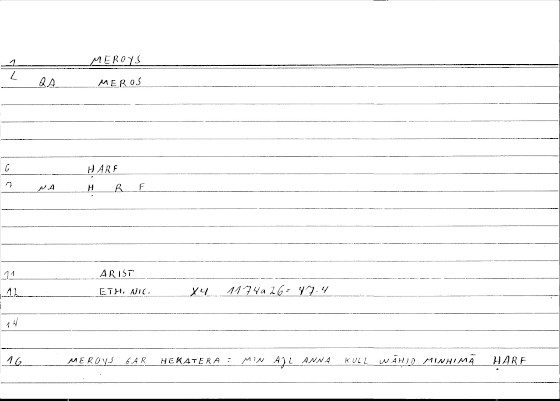 1 MEROYS
2 QA MEROS
6 ḤARF
7 NA Ḥ R F
11 ARIST
12 ETH. NIC. X4 1174a26 = 47.4
14
16 MEROYS GAR HEKATERA = MIN AJL ANNA KULL WĀHID MINHIMĀ ḤARF